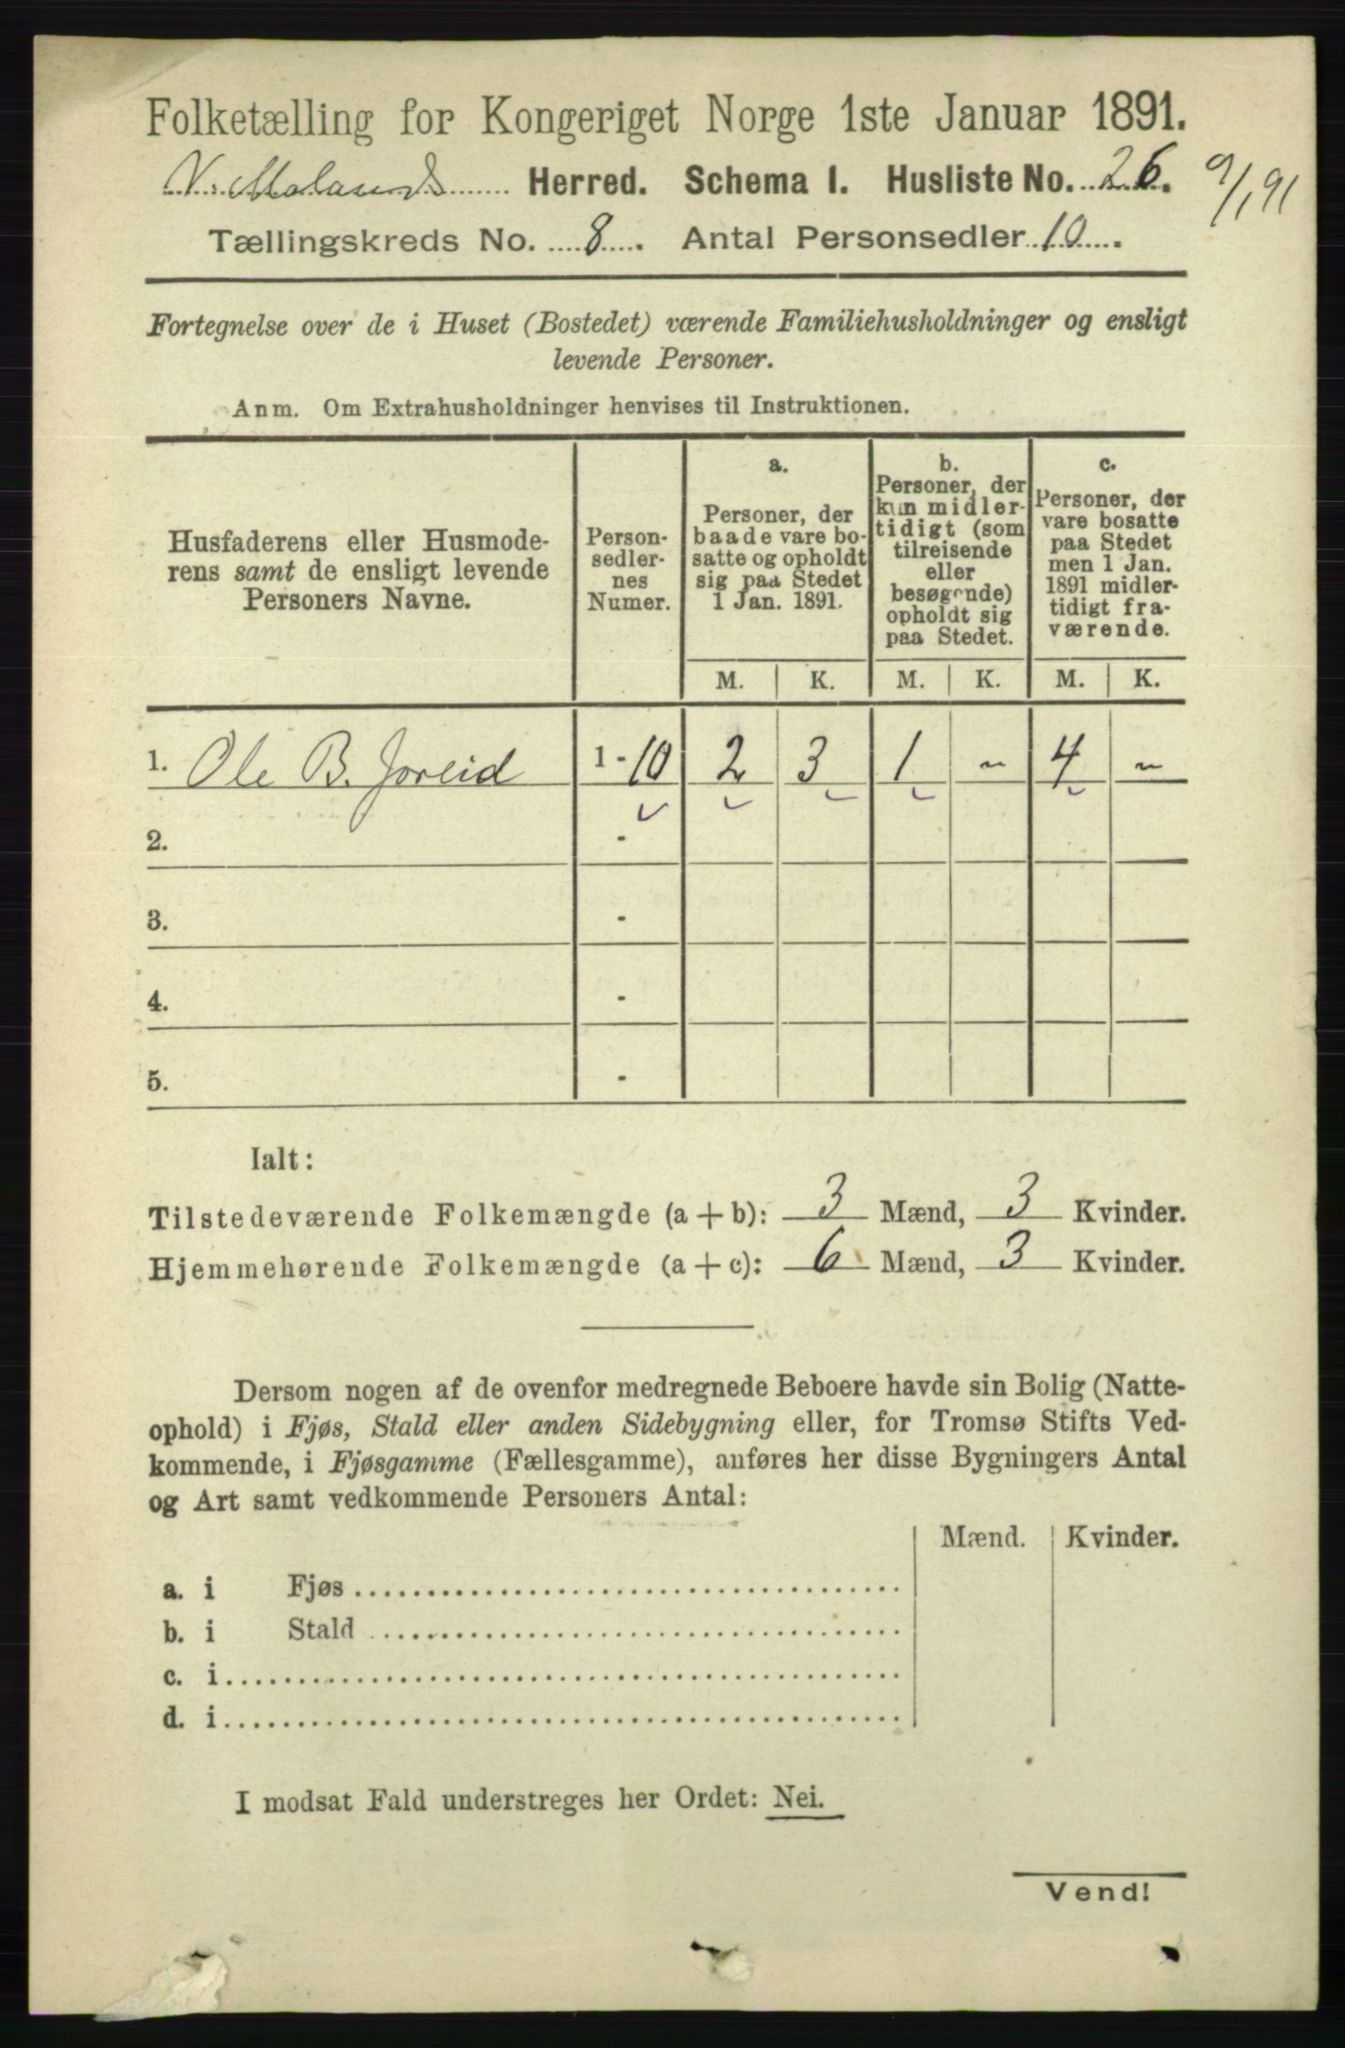 Folketælling for Kongeriget Norge 1ste Januar 1891.
V. Molands Herred. Schema I. Husliste No. 26.
9/1 91
Tællingskreds No. 8. Antal Personsedler 10.
Fortegnelse over de i Huset (Bostedet) værende Familiehusholdninger og ensligt
levende Personer.
Anm. Om Extrahusholdninger henvises til Instruktionen.
Husfaderens eller Husmode-
rens samt de ensligt levende
Personers Navne.
Person-
sedler-
nes
Numer.
a.
Personer, der
baade vare bo-
satte og opholdt
sig paa Stedet
1 Jan. 1891.
b.
Personer, der
kun midler-
tidigt (som
tilreisende
eller
besøgende)
opholdt sig
paa Stedet.
c.
Personer, der
vare bosatte
paa Stedet
men 1 Jan.
1891 midler-
tidigt fra-
værende.
M. K. M. K. M. K.
1. Ole B. Joreid 1 - 10 2 3 1 - 4 -
2. -
3. -
4. -
5. -
Ialt:
Tilstedeværende Folkemængde (a + b): 3 Mænd, 3 Kvinder.
Hjemmehørende Folkemængde (a + c): 6 Mænd, 3 Kvinder.
Dersom nogen af de ovenfor medregnede Beboere havde sin Bolig (Natte-
ophold) i Fjøs, Stald eller anden Sidebygning eller, for Tromsø Stifts Ved-
kommende, i Fjøsgamme (Fællesgamme), anføres her disse Bygningers Antal
og Art samt vedkommende Personers Antal:
Mænd. Kvinder.
a. i Fjøs
b. i Stald
c. i
d. i
I modsat Fald understreges her Ordet: Nei.
Vend!